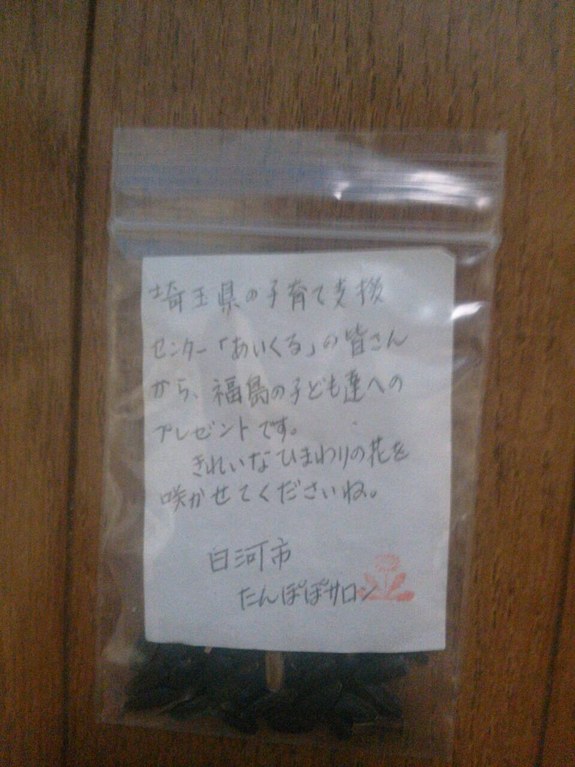 埼玉県の子育て支援
センター「あいくる」の皆さん
から、福島の子ども達への
プレゼントです。
きれいなひまわりの花を
咲かせてくださいね。
白河市
たんぽぽサロン